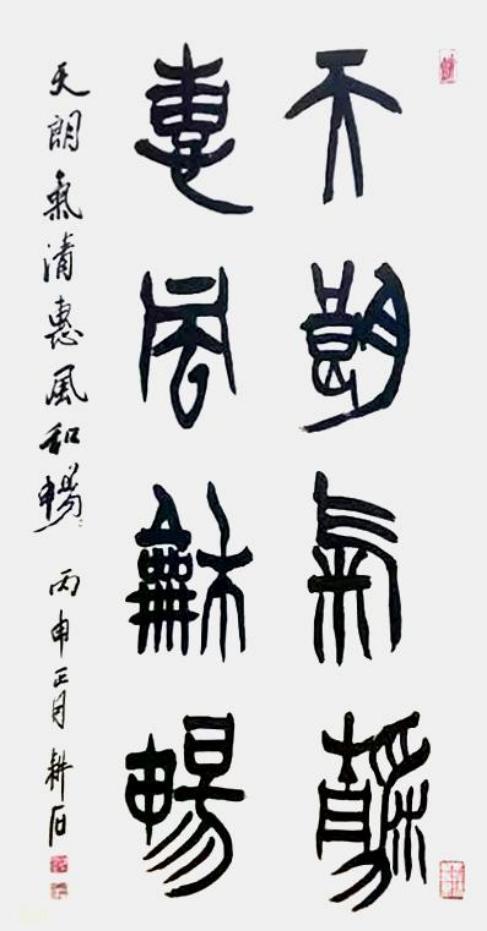 天朗氣清
惠風龢暢
天朗氣清惠風和暢 丙申正月 耕石